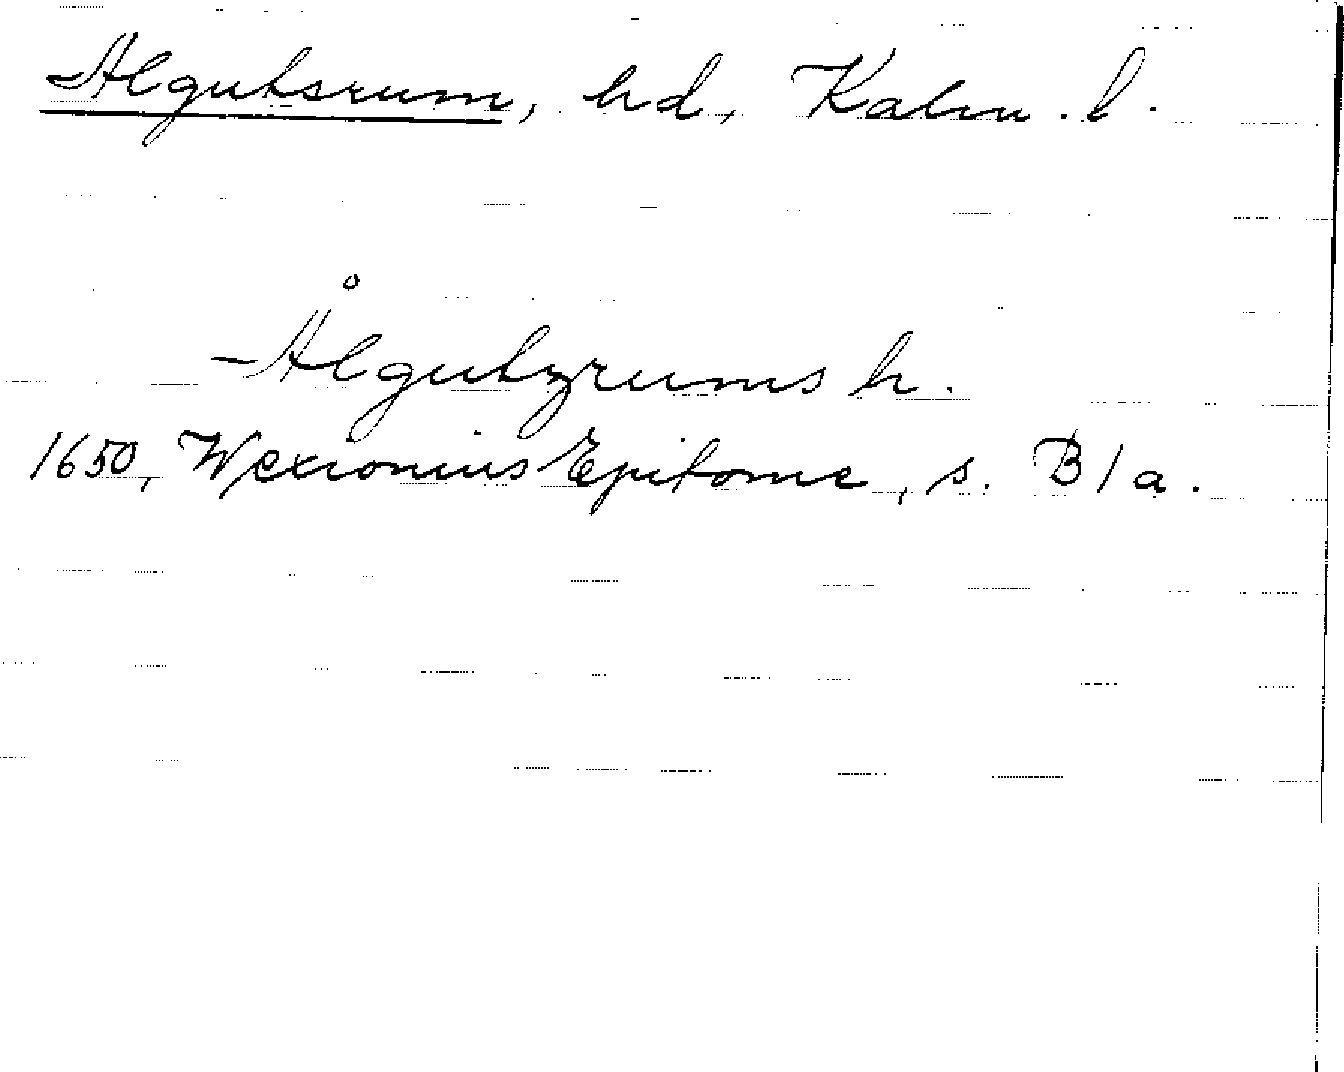 Algutsrum, hd, Kalm. l.
Ålgutzrums h.
1650, Wexionius Epitome, s. B1a.